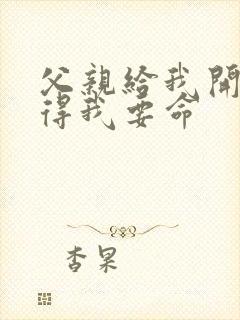 父親給我開
得我要命
杏果